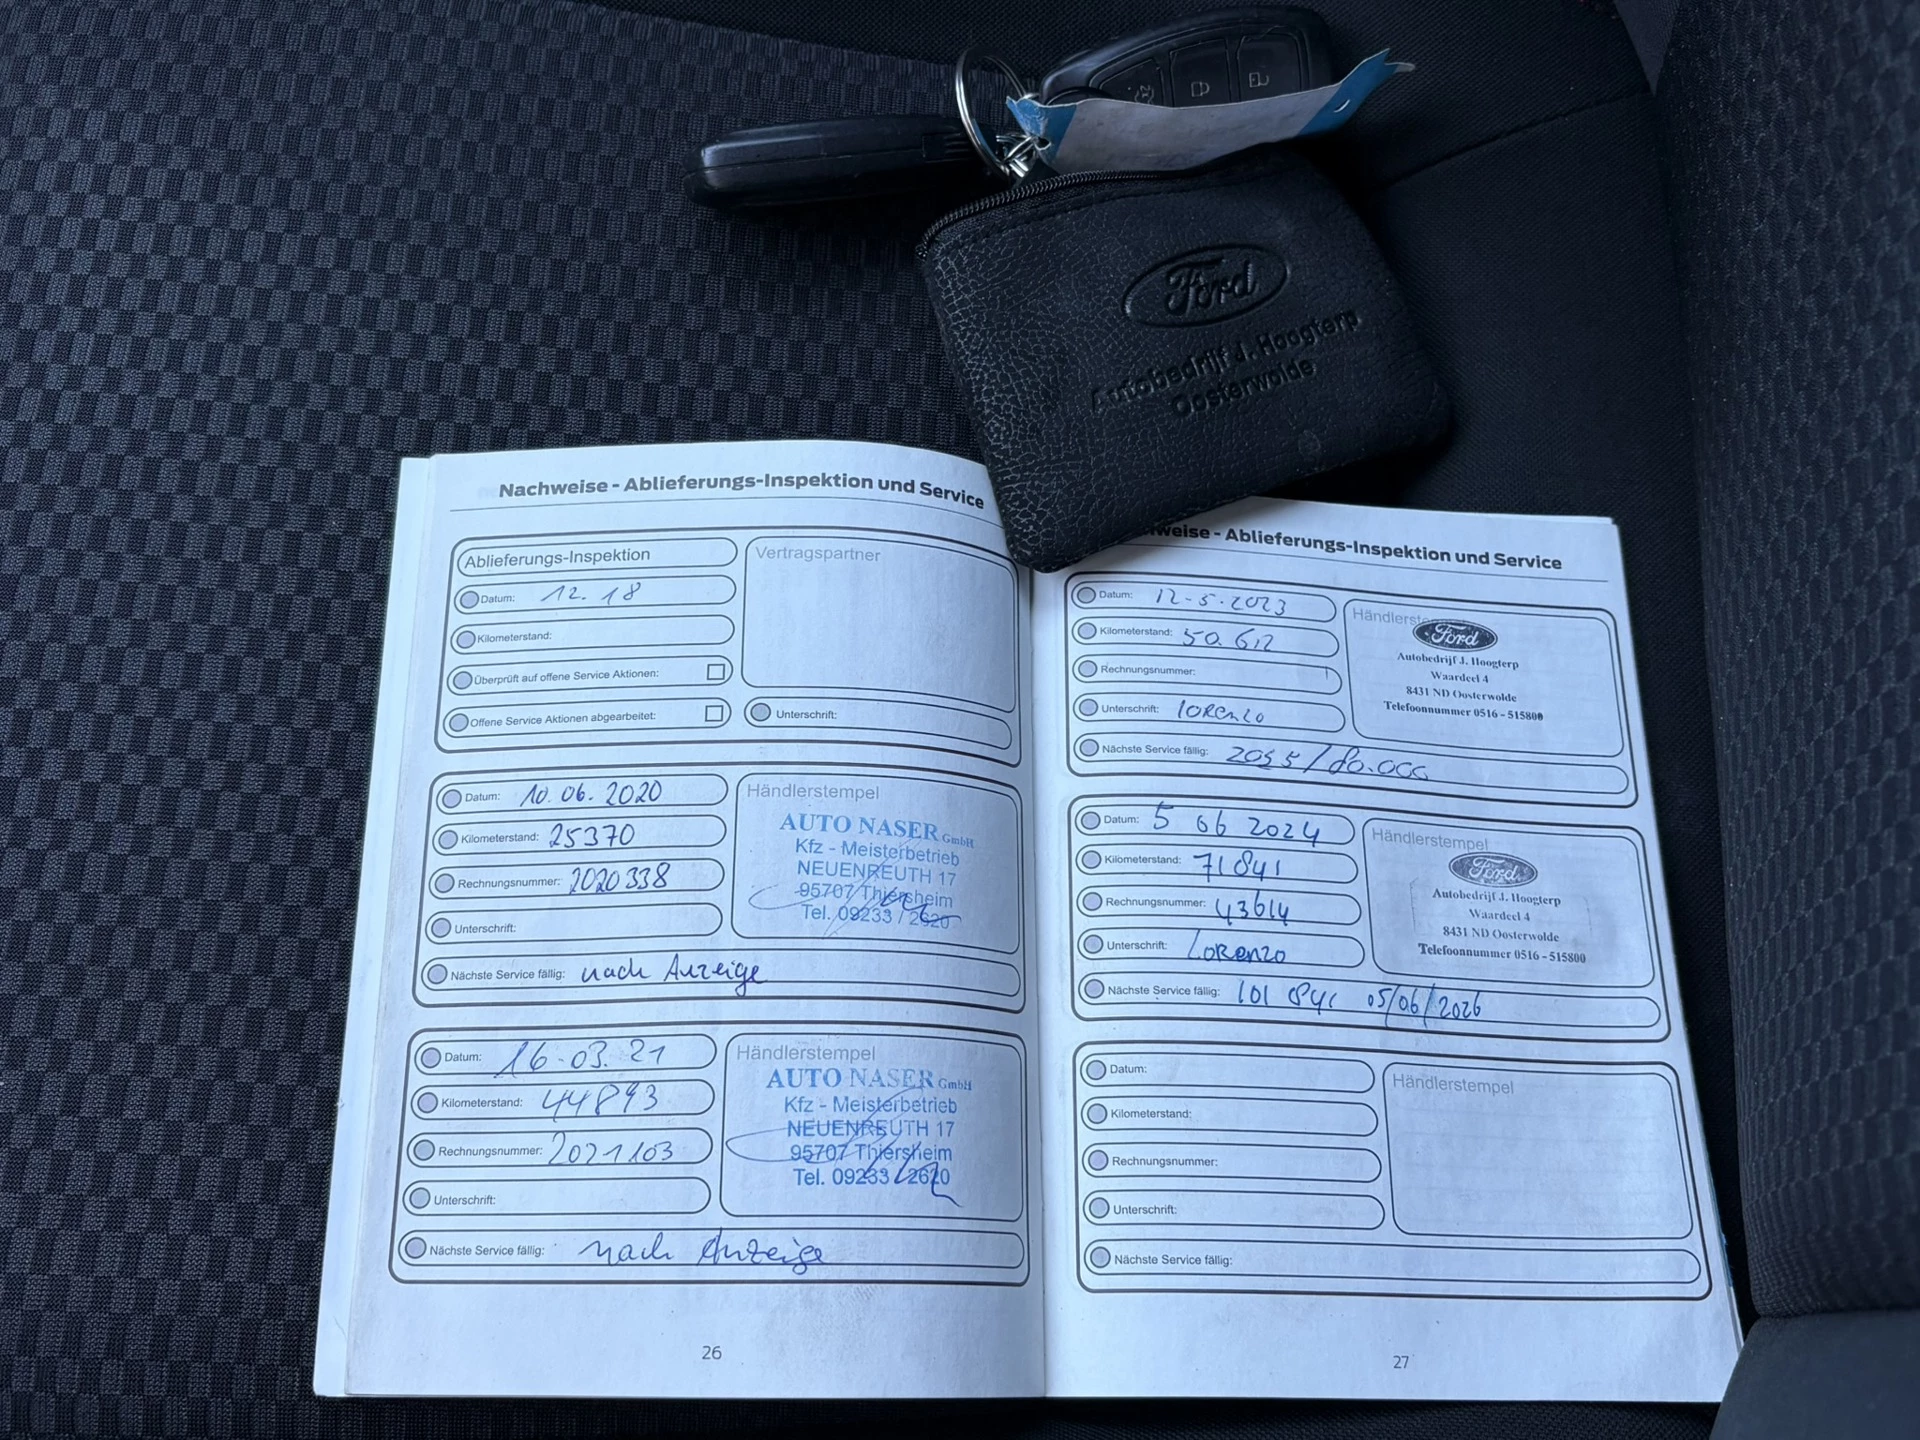 Ford
Autobedrijf J. Hoogterp
Oosterwolde
Nachweise - Ablieferungs-Inspektion und Service
Ablieferungs-Inspektion
Datum: 12.18
Kilometerstand:
Überprüft auf offene Service Aktionen:
Offene Service Aktionen abgearbeitet:
Vertragspartner
Unterschrift:
Datum: 10.06.2020
Kilometerstand: 25370
Rechnungsnummer: 2020338
Unterschrift:
Nächste Service fällig: nach Anzeige
Händlerstempel
AUTO NASER GmbH
Kfz - Meisterbetrieb
NEUENREUTH 17
95707 Thiersheim
Tel. 09233 / 2620
Datum: 16.03.21
Kilometerstand: 44893
Rechnungsnummer: 2021103
Unterschrift:
Nächste Service fällig: nach Anzeige
Händlerstempel
AUTO NASER GmbH
Kfz - Meisterbetrieb
NEUENREUTH 17
95707 Thiersheim
Tel. 09233 / 2620
26
weise - Ablieferungs-Inspektion und Service
Datum: 12-5-2023
Kilometerstand: 50.612
Rechnungsnummer:
Unterschrift: Lorenzo
Nächste Service fällig: /80.000
Händlerste
Ford
Autobedrijf J. Hoogterp
Waardeel 4
8431 ND Oosterwolde
Telefoonnummer 0516 - 515800
Datum: 5 06 2024
Kilometerstand: 71841
Rechnungsnummer: 43614
Unterschrift: Lorenzo
Nächste Service fällig: 101 841 05/06/2026
Händlerstempel
Ford
Autobedrijf J. Hoogterp
Waardeel 4
8431 ND Oosterwolde
Telefoonnummer 0516 - 515800
Datum:
Kilometerstand:
Rechnungsnummer:
Unterschrift:
Nächste Service fällig:
Händlerstempel
27